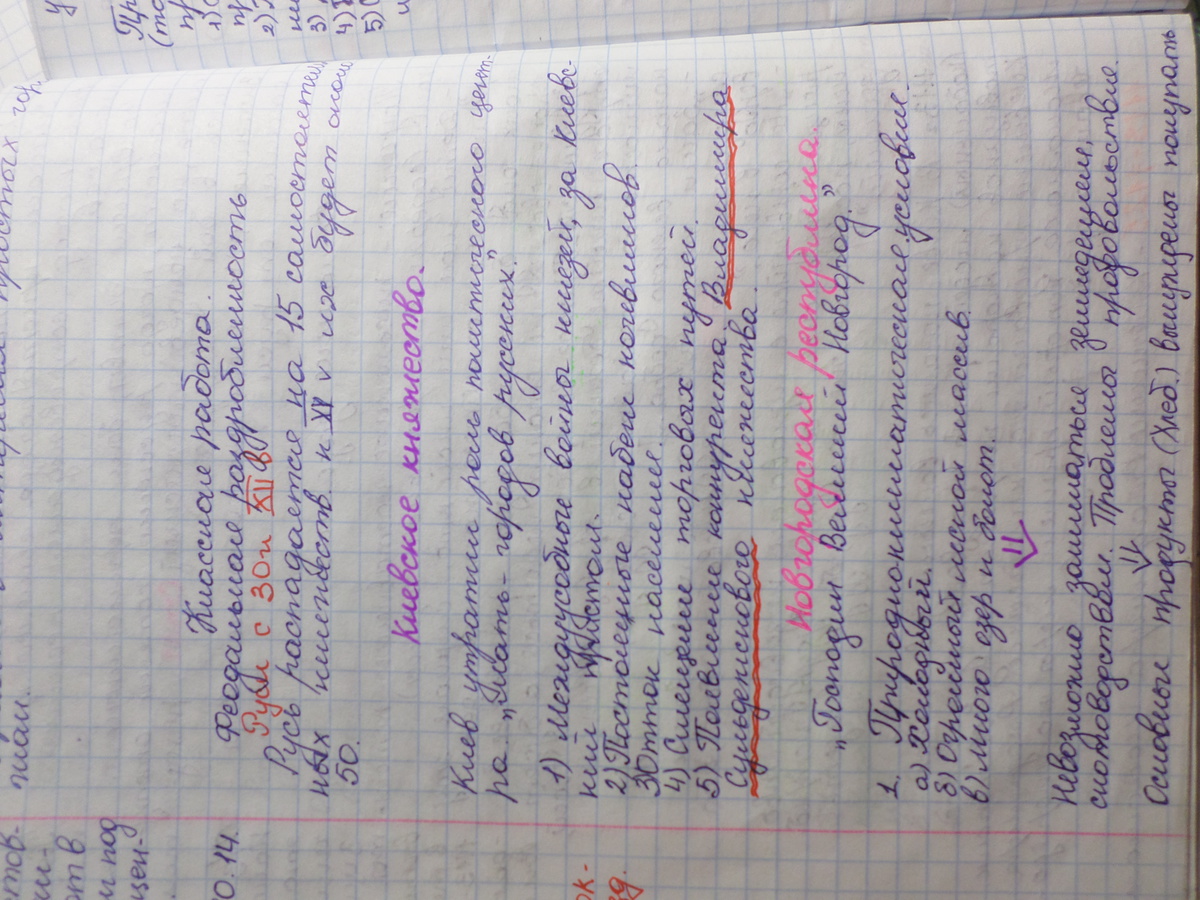 гор.
простых
лиам.
0.14.
Классная работа.
Феодальная раздробленность
Руси с 30и XII в
Русь распадается на 15 самостоятель
ных княжеств к XV v их будет около
50.
Киевское княжество.
Киев утратил роль политического цент-
ра. „Мать-городов русских."
1) Междуусобные войны князей, за Киевс-
кий престол.
2) Постоянные набеги кочевников
3) Отток населения.
4) Смещение торговых путей.
5) Появление конкурента Владимира
Суздальского княжества.
Новгородская республика.
„Господин Великий Новгород."
1. Природноклиматические условие.
а) Холодный.
б) Огромный лесной массив.
в) Много озёр и болот.
Невозможно заниматься земледелием,
скотоводством. Проблемы продовольствие.
Основные продукты (хлеб.) вынуждены покупать
тов-
ки-
ств
и под
цен-
ок-
зд.
1)
2)
3)
4)
5)